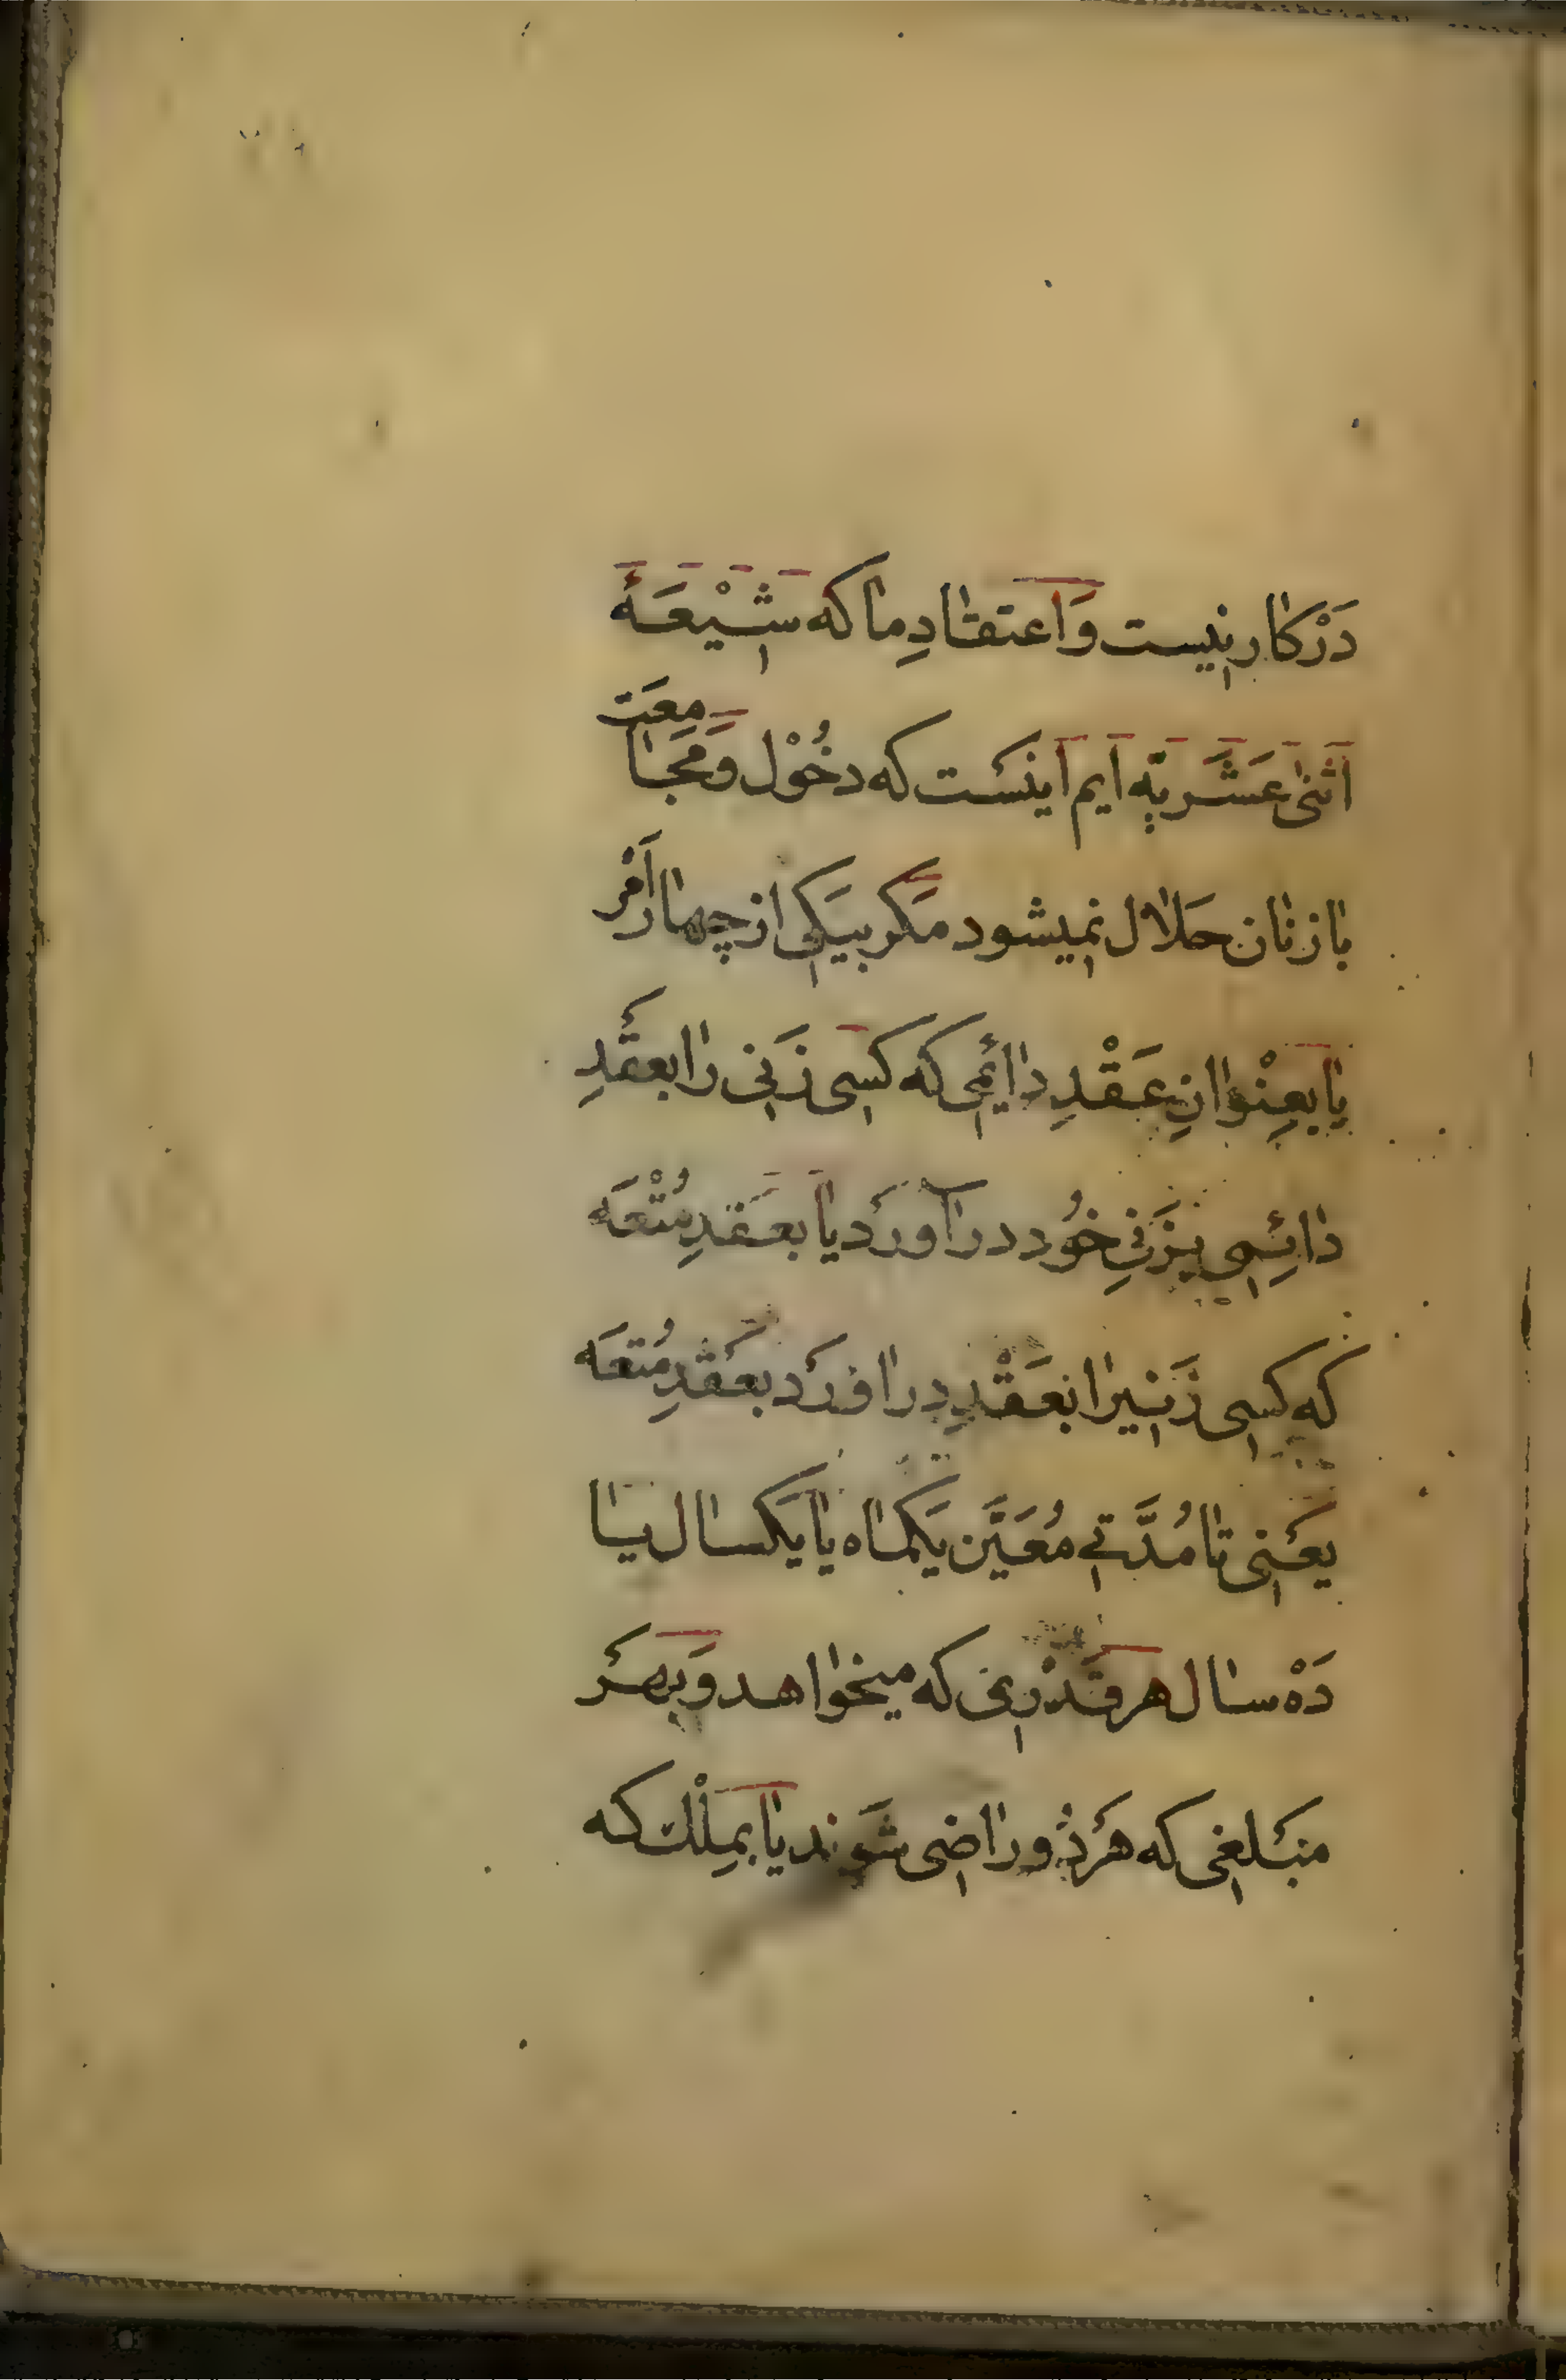 دَرْکار نیست وَاعتقادِ ما که شیْعَۀ
اثنی عَشَریّه ایم اینَست که دخُوْل وَ مُجَامِعَت
با زنان حَلال نمیشود مَکر بیَکی از چهار اَمْر
یا بعِنْوانِ عَقْدِ دائمی که کسی زَنی را بعَقْدِ
دائِمی بزَنیِ خُود درآورَد یا بعَقدِ مُتْعَه
که کسی زَنیرا بعَقْدِ دراورَد بعَقْدِ مُتعَه
یعَنی تا مُدَّتی مُعَیَّن یَکماه یا یَکسال یا
دَهْ سال هر قَدْری که میخواهد وَ بهَر
مَبَلغی که هَر دُو راضی شَوند یا بمِلْک که